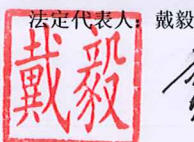 法定代表人：戴毅
戴毅